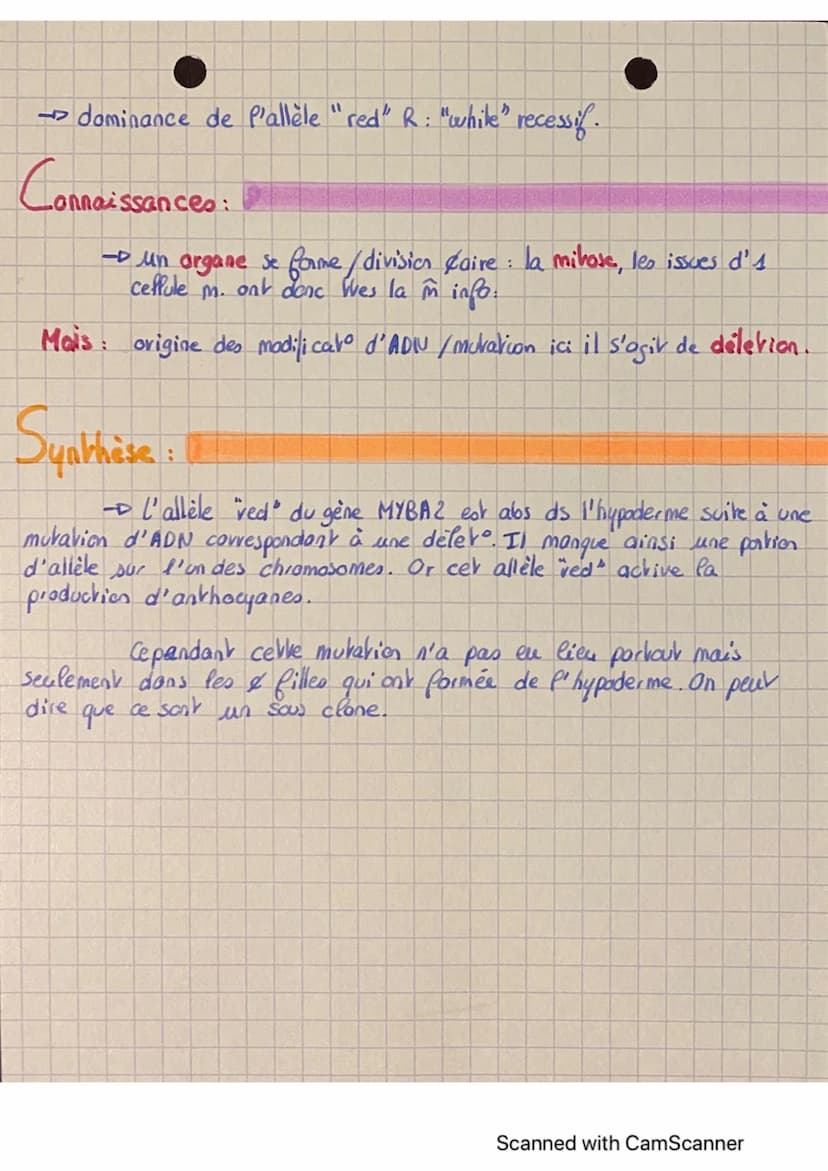 → dominance de l'allèle "red" R : "white" recessif.
Connaissances :
→ un organe se forme / division ¢aire : la mitose, les issues d'1
cellule m. ont donc ttes la m̂ info.
Mais : origine des modificat° d'ADN / mutation ici il s'agit de délétion.
Synthèse :
→ L'allèle "red" du gène MYBA2 est abs ds l'hypoderme suite à une
mutation d'ADN correspondant à une délét°. Il manque ainsi une portion
d'allèle sur l'un des chromosomes. Or cet allèle "red" active la
production d'anthocyanes.
Cependant cette mutation n'a pas eu lieu partout mais
seulement dans les ¢ filles qui ont formée de l'hypoderme. On peut
dire que ce sont un sous clone.
Scanned with CamScanner